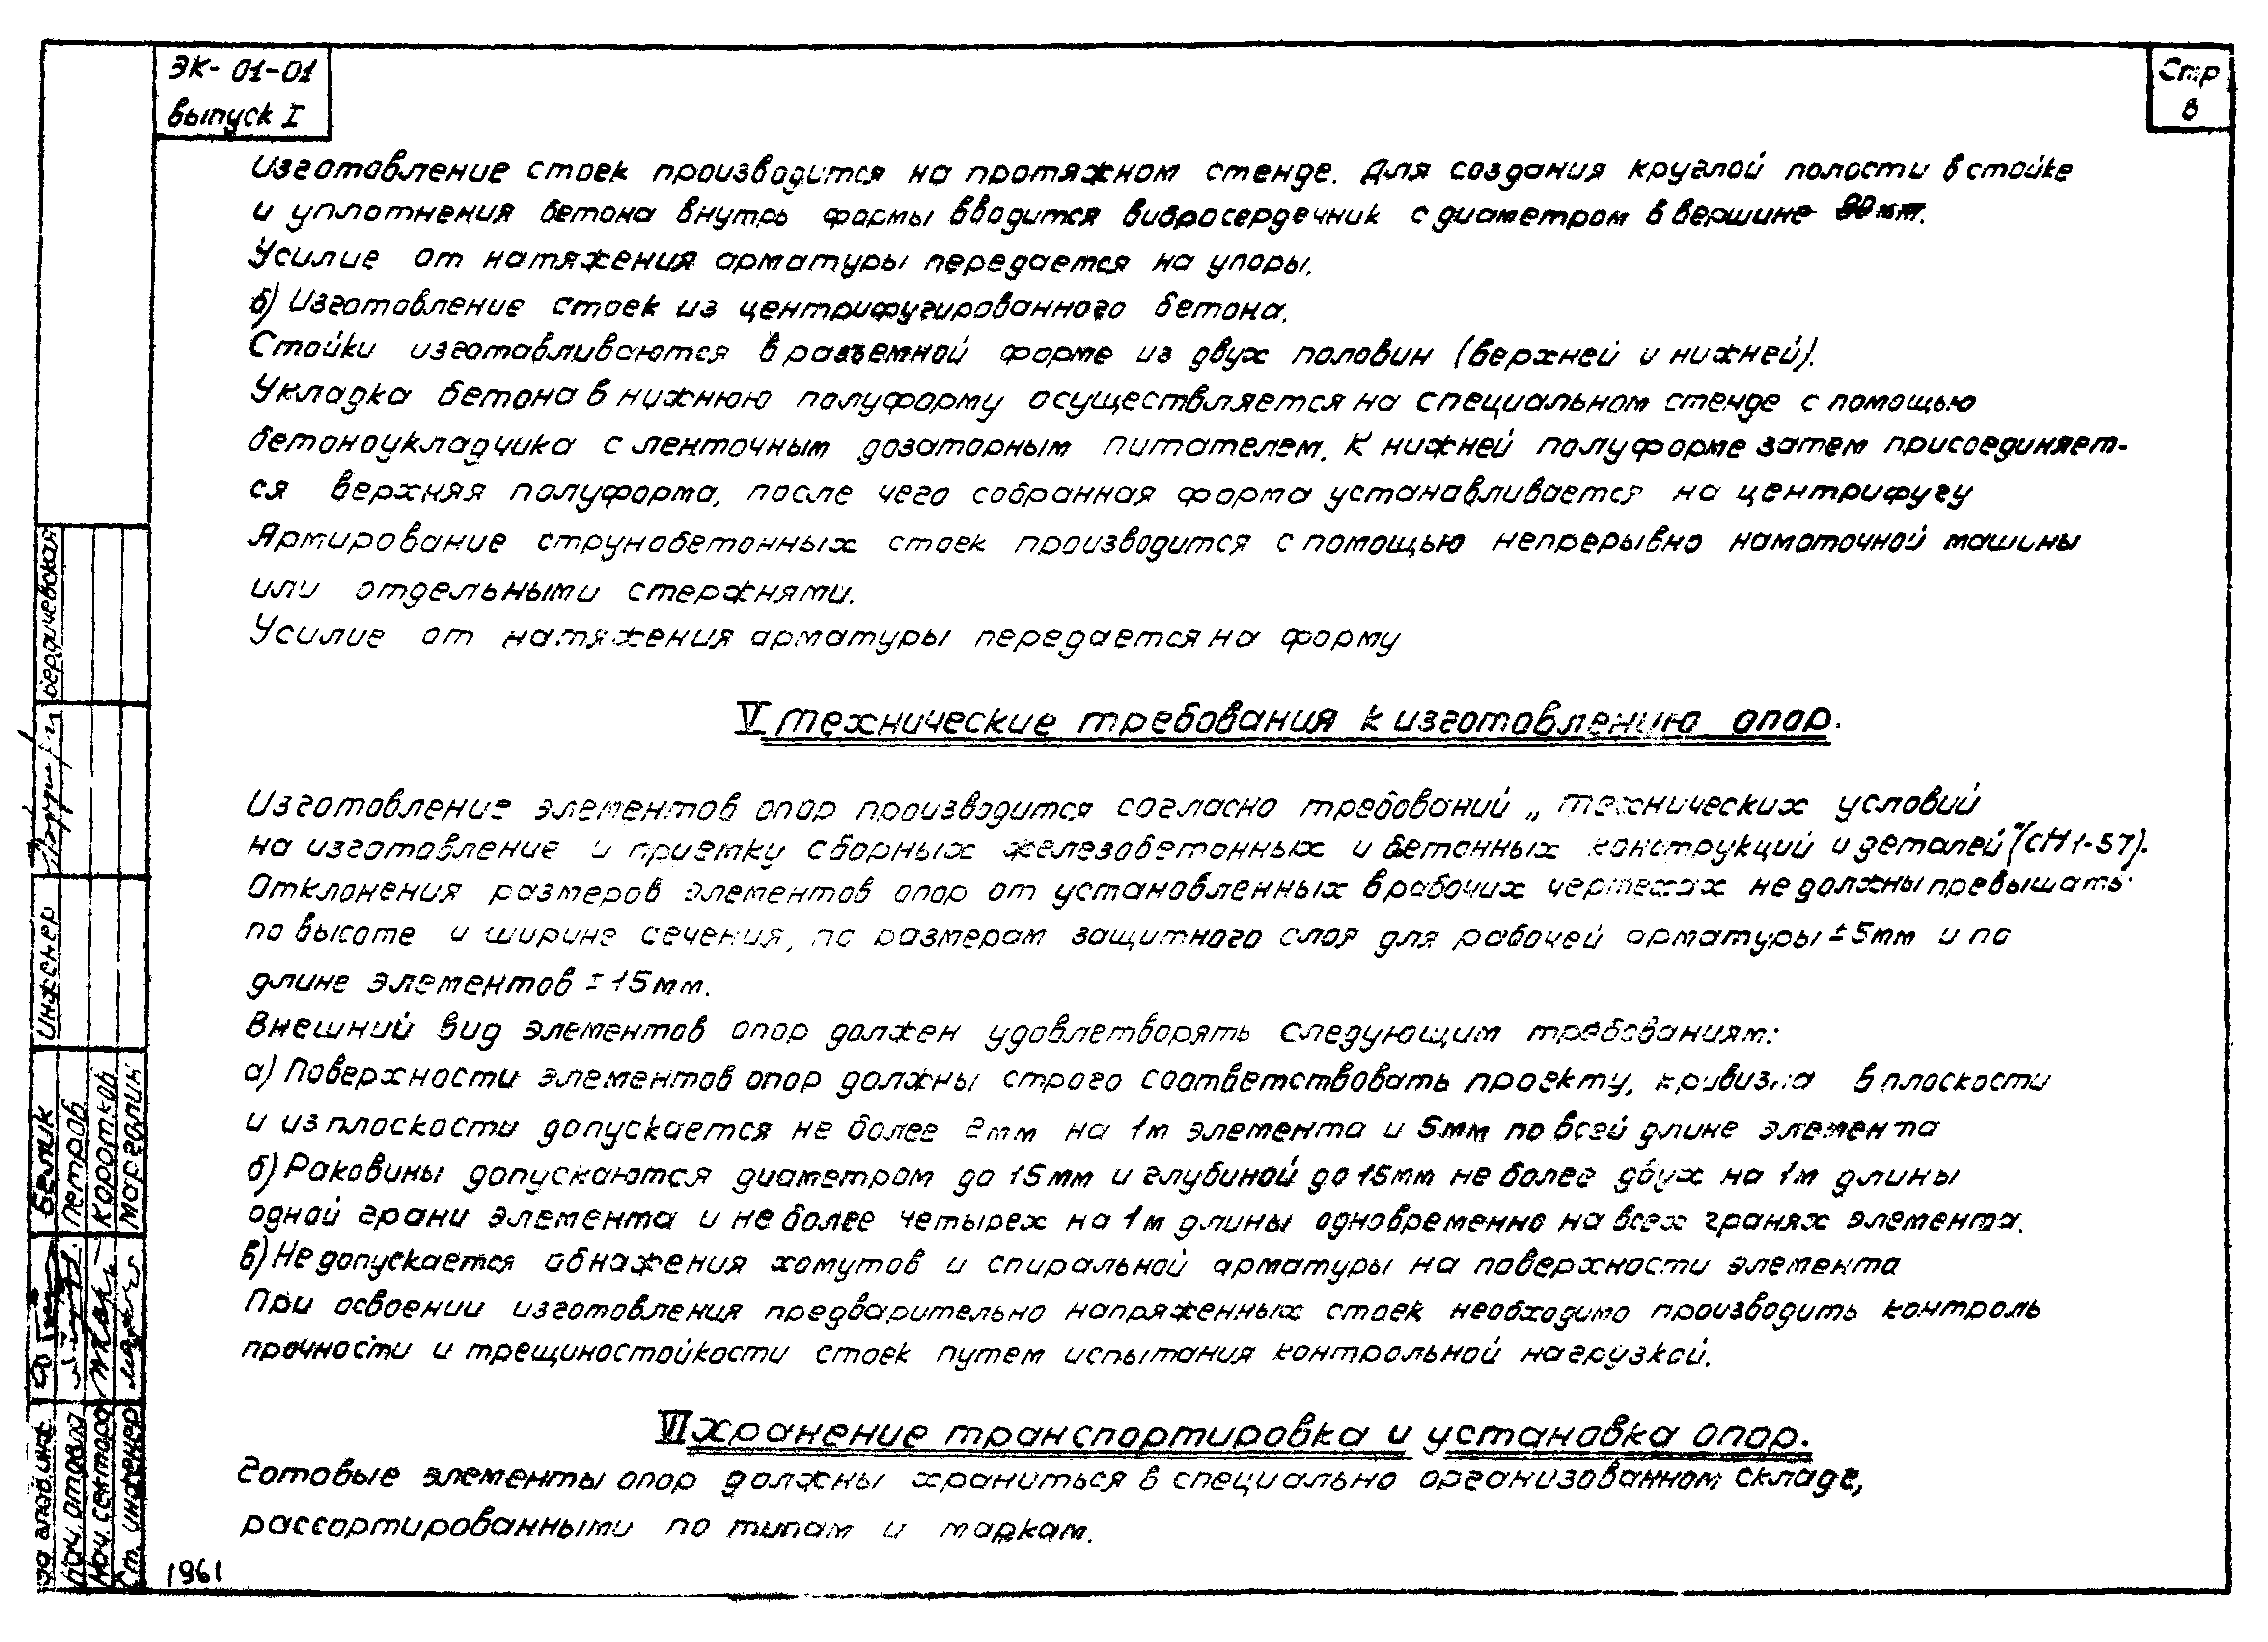 ЭК- 01-01
выпуск I
Стр
8
Изготовление стоек производится на протяжном стенде. Для создания круглой полости в стойке
и уплотнения бетона внутрь формы вводится вибросердечник с диаметром в вершине мм.
Усилие от натяжения арматуры передается на упоры.
б) Изготовление стоек из центрифугированного бетона.
Стойки изготавливаются в разъемной форме из двух половин (верхней и нижней).
Укладка бетона в нижнюю полуформу осуществляется на специальном стенде с помощью
бетоноукладчика с ленточным дозаторным питателем. К нижней полуформе затем присоединяет-
ся верхняя полуформа, после чего собранная форма устанавливается на центрифугу
Армирование струнобетонных стоек производится с помощью непрерывно намоточной машины
или отдельными стержнями.
Усилие от натяжения арматуры передается на форму
V Технические требования к изготовлению опор.
Изготовление элементов опор производится согласно требований „Технических условий
на изготовление и приемку сборных железобетонных и бетонных конструкций и деталей" (СН 1-57).
Отклонения размеров элементов опор от установленных в рабочих чертежах не должны превышать
по высоте и ширине сечения, по размерам защитного слоя для рабочей арматуры ±5мм и по
длине элементов ±15мм.
Внешний вид элементов опор должен удовлетворять следующим требованиям:
а) Поверхности элементов опор должны строго соответствовать проекту, кривизна в плоскости
и из плоскости допускается не более 2мм на 1м элемента и 5мм по всей длине элемента
б) Раковины допускаются диаметром до 15мм и глубиной до 15мм не более двух на 1м длины
одной грани элемента и не более четырех на 1м длины одновременно на всех гранях элемента.
в) Не допускается обнажения хомутов и спиральной арматуры на поверхности элемента
При освоении изготовления предварительно напряженных стоек необходимо производить контроль
прочности и трещиностойкости стоек путем испытания контрольной нагрузкой.
VI Хранение транспортировка и установка опор.
Готовые элементы опор должны храниться в специально организованном складе,
рассортированными по типам и маркам.
1961
Бердичевская
инженер
Белик
Петров
Коротков
Марголин
Нач. отдела
Нач. сектора
Ст. инженер